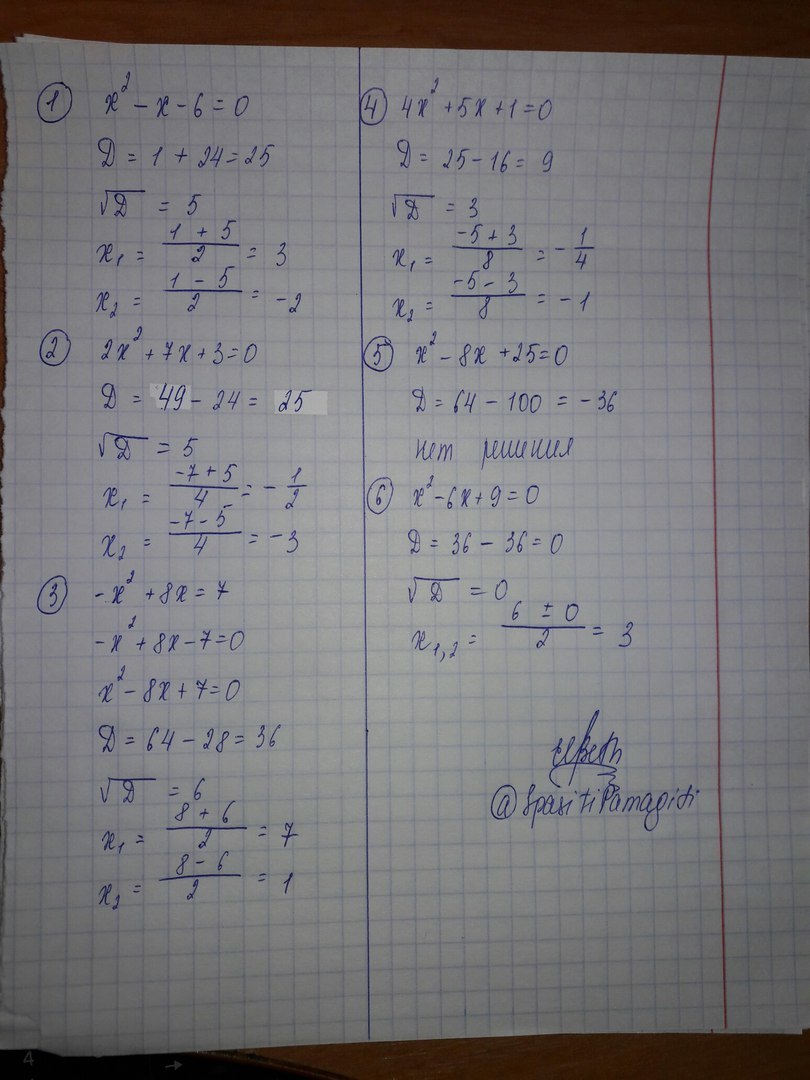 ① x² - x - 6 = 0
D = 1 + 24 = 25
√D = 5
x₁ = (1 + 5)/2 = 3
x₂ = (1 - 5)/2 = -2
② 2x² + 7x + 3 = 0
D = 49 - 24 = 25
√D = 5
x₁ = (-7 + 5)/4 = -1/2
x₂ = (-7 - 5)/4 = -3
③ -x² + 8x = 7
-x² + 8x - 7 = 0
x² - 8x + 7 = 0
D = 64 - 28 = 36
√D = 6
x₁ = (8 + 6)/2 = 7
x₂ = (8 - 6)/2 = 1
④ 4x² + 5x + 1 = 0
D = 25 - 16 = 9
√D = 3
x₁ = (-5 + 3)/8 = -1/4
x₂ = (-5 - 3)/8 = -1
⑤ x² - 8x + 25 = 0
D = 64 - 100 = -36
нет решения
⑥ x² - 6x + 9 = 0
D = 36 - 36 = 0
√D = 0
x₁,₂ = (6 ± 0)/2 = 3
@SpasitiPamagiti
4